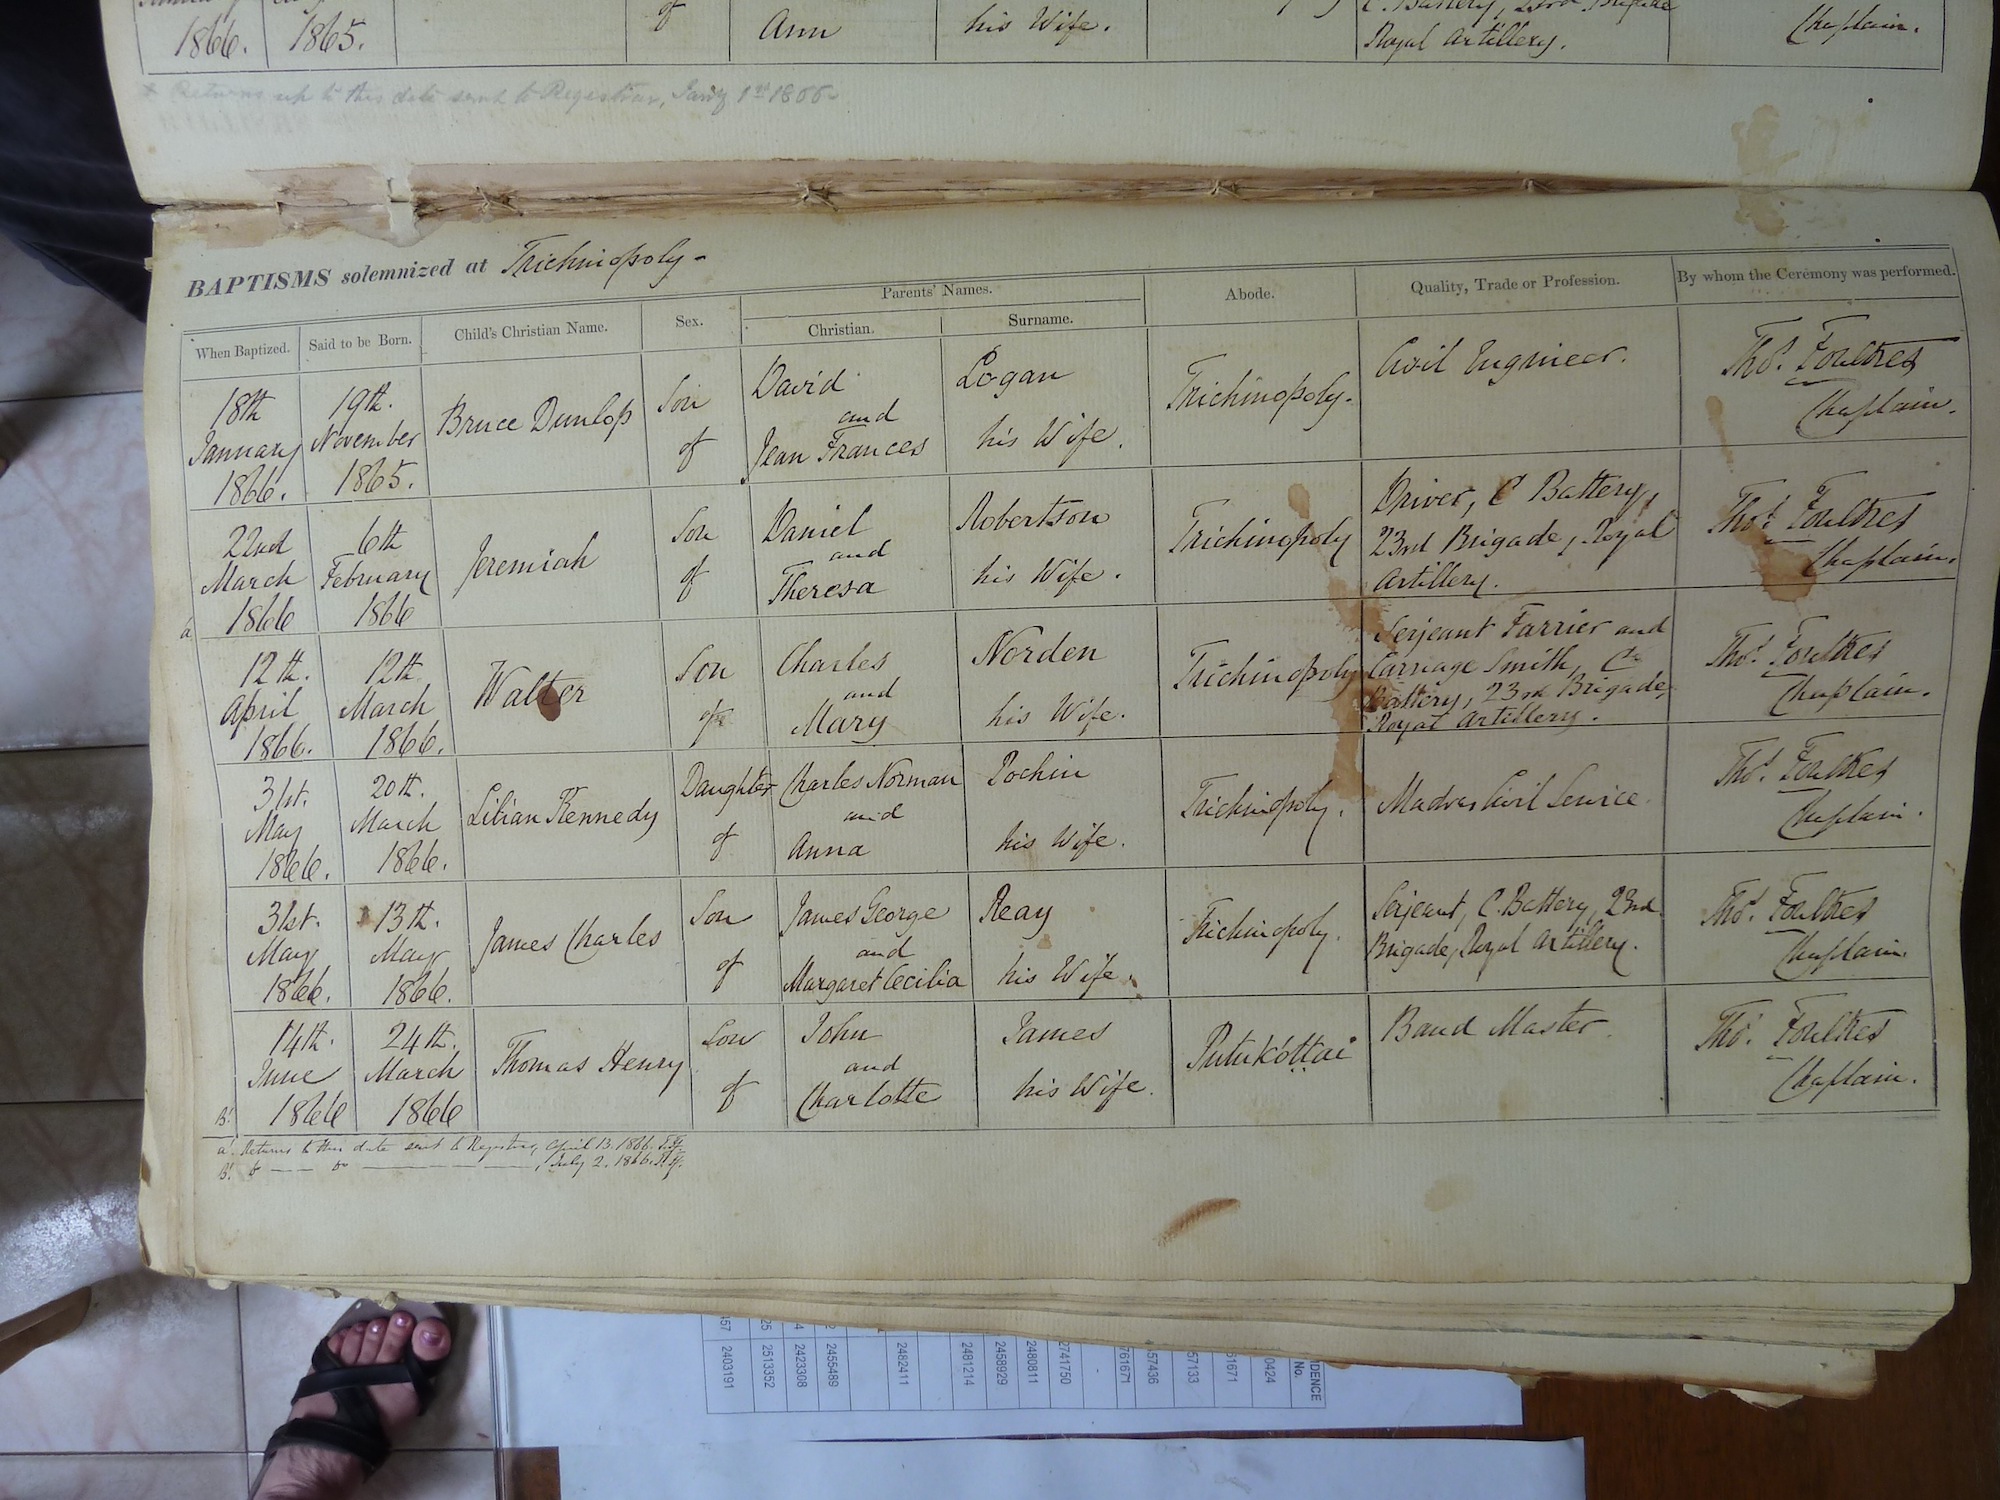 1866. 1865. of Ann his Wife. C. Battery, 23rd Brigade Royal Artillery. Chaplain.
* Returns up to this date sent to Registrar, Jany 1st 1866
BAPTISMS solemnized at Trichinopoly-
When Baptized. Said to be Born. Child's Christian Name. Sex. Parents' Names. Christian. Surname. Abode. Quality, Trade or Profession. By whom the Ceremony was performed.
18th January 1866. 19th. November 1865. Bruce Dunlop Son of David and Jean Frances Logan his Wife. Trichinopoly. Civil Engineer. Thos. Foulkes Chaplain.
22nd March 1866 6th February 1866 Jeremiah Son of Daniel and Theresa Robertson his Wife. Trichinopoly Driver, C Battery, 23rd Brigade, Royal Artillery. Thos. Foulkes Chaplain.
a. 12th. April 1866. 12th. March 1866. Walter Son of Charles and Mary Norden his Wife. Trichinopoly Serjeant Farrier and Carriage Smith, C. Battery, 23rd Brigade, Royal Artillery. Thos. Foulkes Chaplain.
31st. May 1866. 20th. March 1866. Lilian Kennedy Daughter of Charles Norman and Anna Pochin his Wife. Trichinopoly. Madras Civil Service. Thos. Foulkes Chaplain.
31st. May 1866. 13th. May 1866. James Charles Son of James George and Margaret Cecilia Reay his Wife. Trichinopoly. Serjeant, C. Battery, 23rd Brigade, Royal Artillery. Thos. Foulkes Chaplain.
B. 14th. June 1866 24th. March 1866 Thomas Henry Son of John and Charlotte James his Wife. Putukottai Band Master. Thos. Foulkes Chaplain.
a. Returns to this date sent to Registrar, April 13. 1866. T.F.
B. do — do —, July 2. 1866. T.F.
2403191
2513352
2423308
2455489
2482411
2481214
2458929
2480811
2741750
761671
57436
57133
61671
0424
DENCE No.